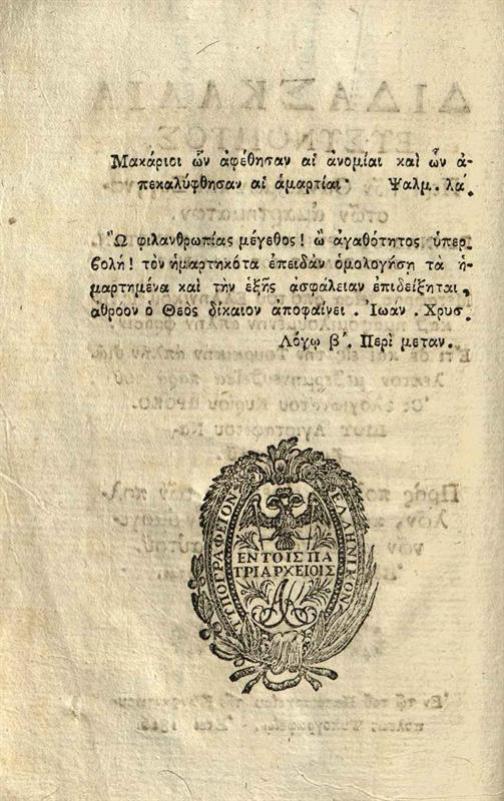 Μακάριοι ὧν ἀφέθησαν αἱ ἀνομίαι καὶ ὧν ἀ-
πεκαλύφθησαν αἱ ἁμαρτίαι· Ψαλμ. λα.
Ὢ φιλανθρωπίας μέγεθος! ὢ ἀγαθότητος ὑπερ
βολή! τὸν ἡμαρτηκότα ἐπειδὰν ὁμολογήσῃ τὰ ἡ-
μαρτημένα καὶ τὴν ἑξῆς ἀσφάλειαν ἐπιδείξηται,
ἀθρόον ὁ Θεὸς δίκαιον ἀποφαίνει. Ἰωάν. Χρυς
Λόγῳ β΄. Περὶ μεταν.
ΤΥΠΟΓΡΑΦΕΙΟΝ ΕΛΛΗΝΙΚΟΝ
ΕΝ ΤΟΙΣ ΠΑ
ΤΡΙΑΡΧΕΙΟΙΣ